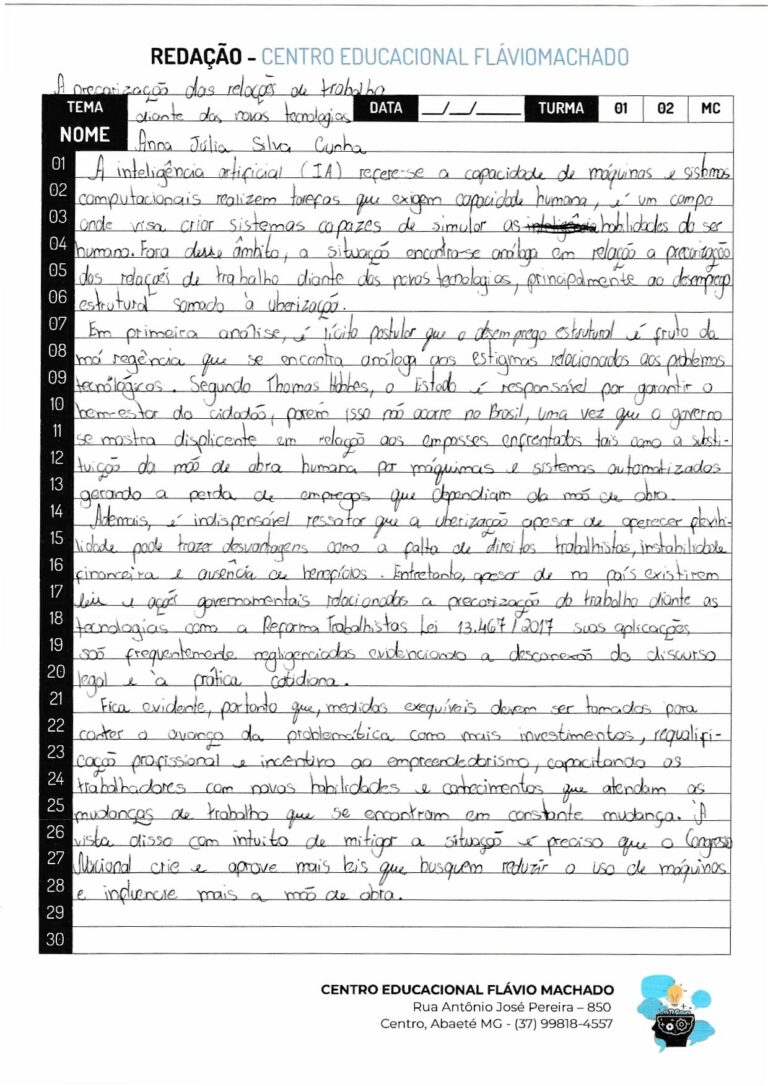 REDAÇÃO - CENTRO EDUCACIONAL FLÁVIOMACHADO
A precarização das relações de trabalho
TEMA diante das novas tecnologias DATA __/__/____ TURMA 01 02 MC
NOME Anna Júlia Silva Cunha
01 A inteligência artificial (IA) refere-se a capacidade de máquinas e sistemas
02 computacionais realizem tarefas que exigem capacidade humana, é um campo
03 onde visa criar sistemas capazes de simular as inteligência habilidades do ser
04 humano. Fora desse âmbito, a situação encontra-se análoga em relação a precarização
05 das relações de trabalho diante das novas tecnologias, principalmente ao desemprego
06 estrutural somado à uberização.
07 Em primeira análise, é lícito postular que o desemprego estrutural é fruto da
08 má regência que se encontra análoga aos estigmas relacionados aos problemas
09 tecnólogicos. Segundo Thomas Hobbes, o Estado é responsável por garantir o
10 bem-estar do cidadão, porém isso não ocorre no Brasil, uma vez que o governo
11 se mostra displicente em relação aos empasses enfrentados tais como a substi-
12 tuição da mão de obra humana por máquimas e sistemas automatizados
13 gerando a perda de empregos que dependiam da mão de obra.
14 Ademais, é indispensável ressaltar que a uberização apesar de oferecer flexibi-
15 lidade pode trazer desvantagens como a falta de direitos trabalhistas, instabilidade
16 financeira e ausência de benefícios. Entretanto, apesar de no país existirem
17 leis e ações governamentais relacionados a precarização do trabalho diante as
18 tecnologias como a Reforma Trabalhistas Lei 13.467/2017 suas aplicações
19 são frequentemente negligenciadas evidenciando a desconexão do discurso
20 legal e à prática cotidiana.
21 Fica evidente, portanto que, medidas exequíveis devem ser tomadas para
22 conter o avanço da problemática como mais investimentos, requalifi-
23 cação profissional e incentivo ao empreendedorismo, capacitando os
24 trabalhadores com novas habilidades e conhecimentos que atendam as
25 mudanças de trabalho que se encontram em constante mudança. À
26 vista disso com intuito de mitigar a situação é preciso que o Congresso
27 Nacional crie e aprove mais leis que busquem reduzir o uso de máquinas
28 e influencie mais a mão de obra.
29
30
CENTRO EDUCACIONAL FLÁVIO MACHADO
Rua Antônio José Pereira – 850
Centro, Abaeté MG - (37) 99818-4557